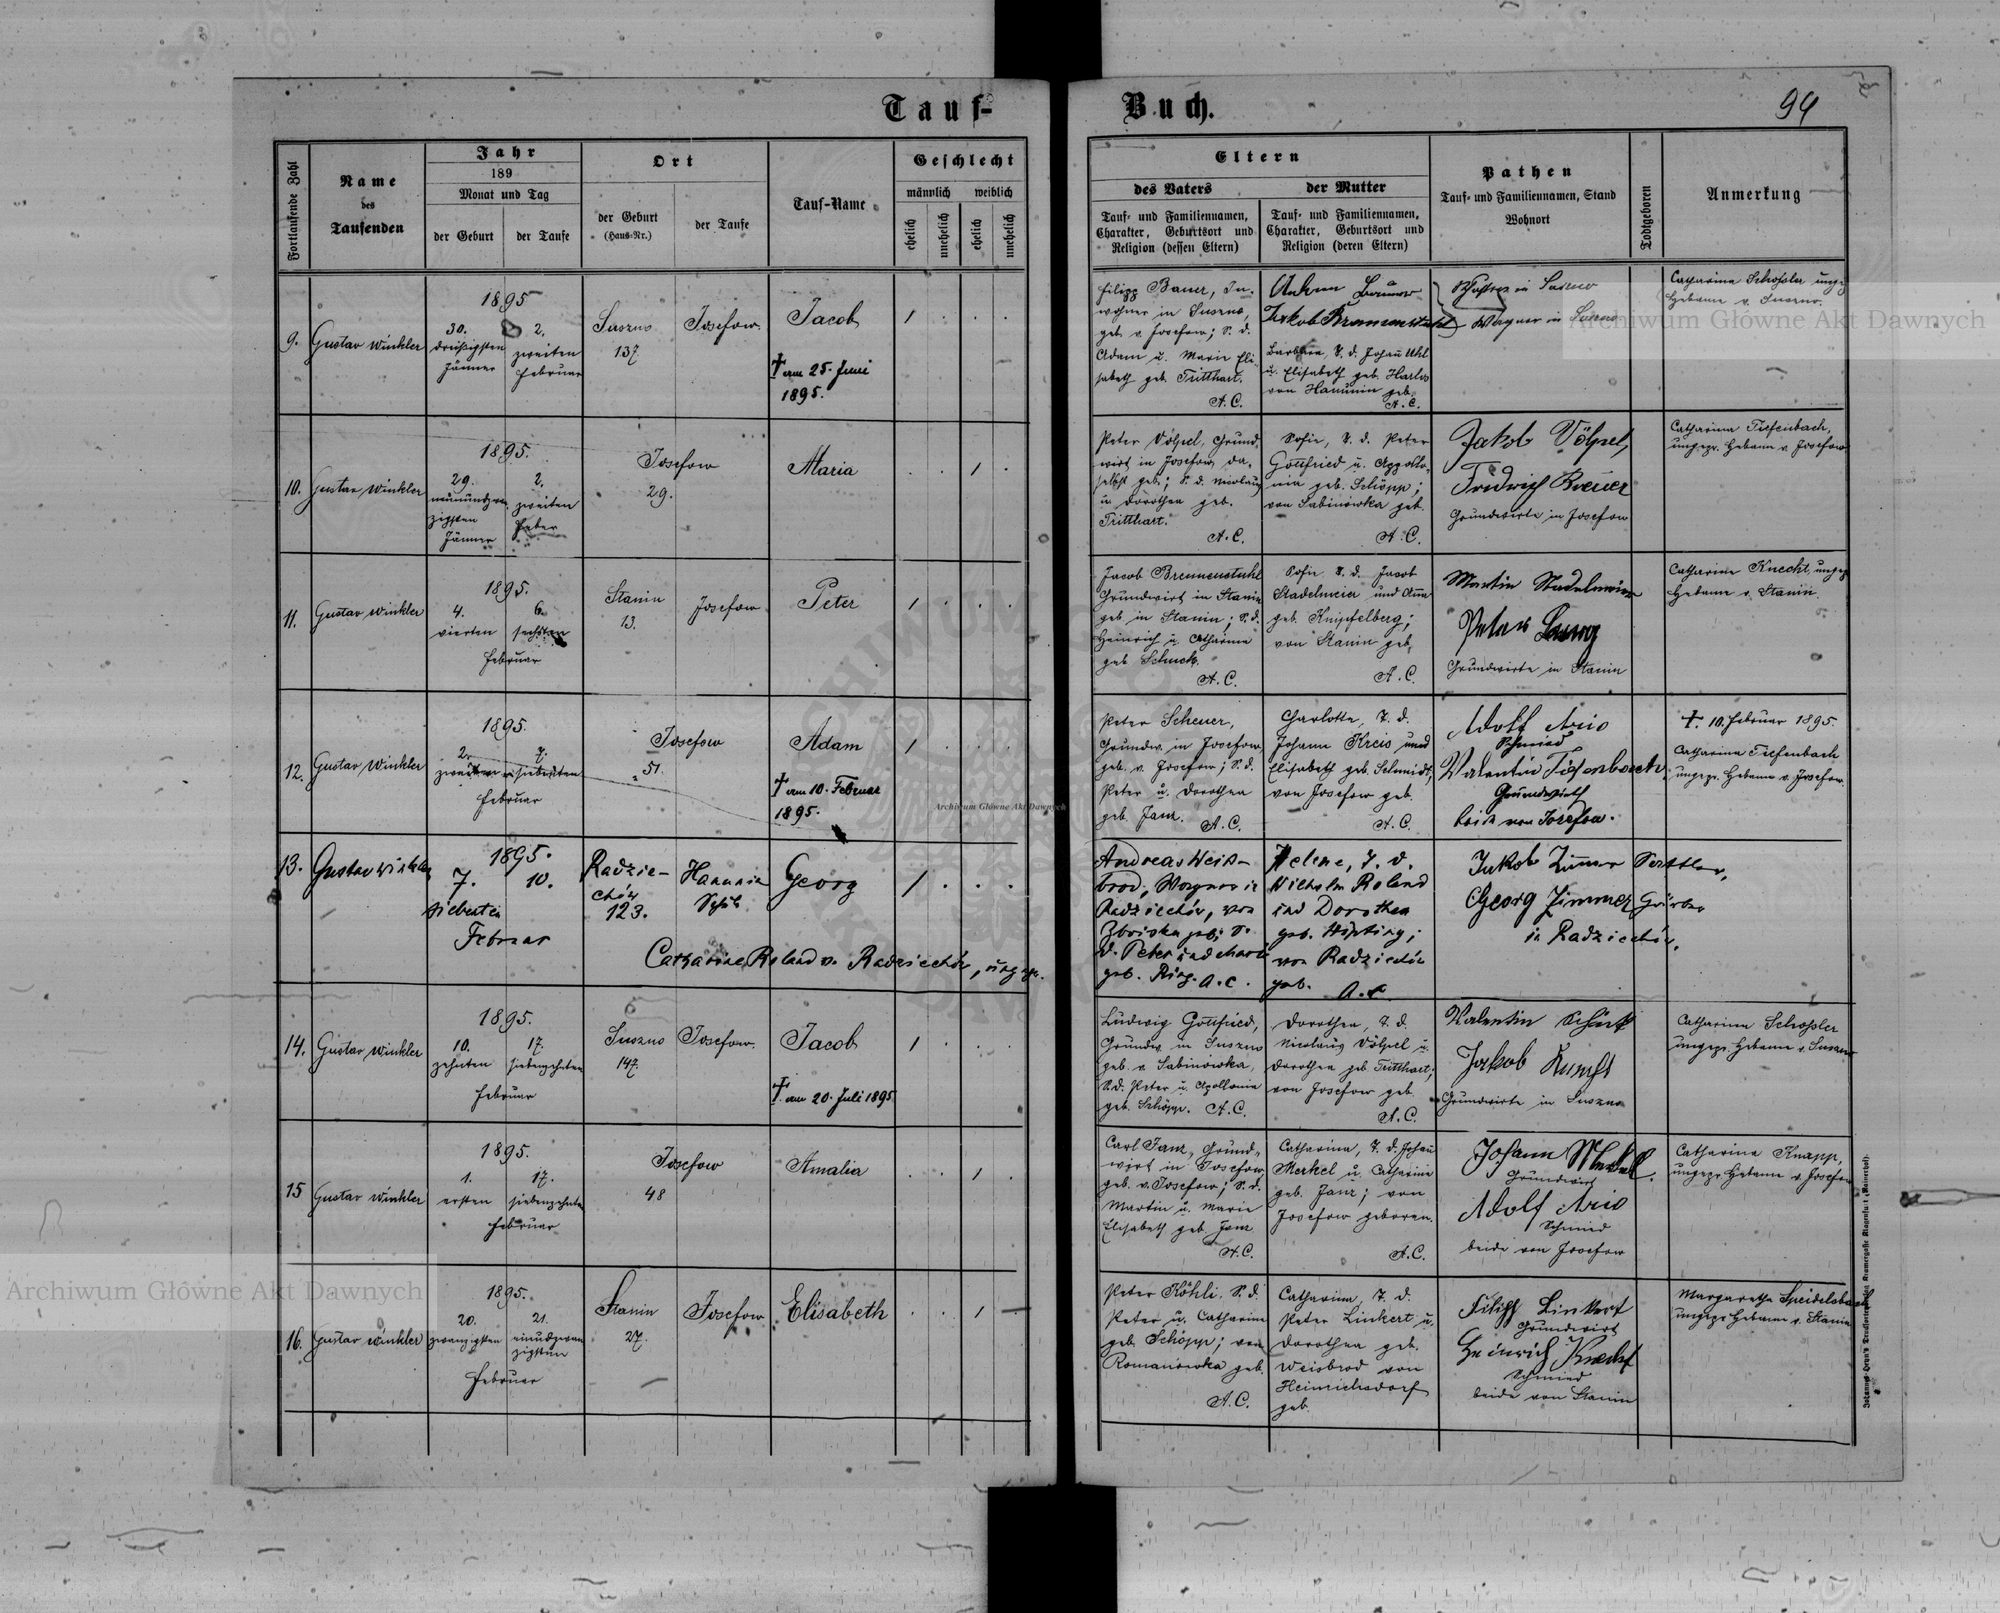 Tauf-
Buch.
94
Fortlaufende Zahl
Name
des
Taufenden
Jahr
189
Monat und Tag
der Geburt
der Taufe
Ort
der Geburt
(Haus-Nr.)
der Taufe
Tauf-Name
Geschlecht
männlich
weiblich
ehelich
unehelich
ehelich
unehelich
Eltern
des Vaters
der Mutter
Tauf- und Familiennamen,
Charakter, Geburtsort und
Religion (dessen Eltern)
Tauf- und Familiennamen,
Charakter, Geburtsort und
Religion (deren Eltern)
Pathen
Tauf- und Familiennamen, Stand
Wohnort
Todtgeboren
Anmerkung
9. Gustav Winkler
1895
30.
dreißigsten
Jänner
2.
zweiten
Februar
Suszno
137
Josefow.
Jacob
† am 25. Juni
1895.
1
Filipp Bauer, In-
wohner in Suszno,
geb. v. Josefow; S. d.
Adam u. Marie Eli-
sabeth geb. Tritthart.
A.C.
Barbara, T. d. Johann Uhl
u. Elisabeth geb.
von Hanunin geb.
A.C.
in Suszno
Wagner in Suszno
Catharina Schossler ungepr.
Hebame v. Suszno.
10. Gustav Winkler
1895.
29.
neunundzwan-
zigsten
Jänner
2.
zweiten
Feber
Josefow
29.
Maria
1
Peter Völpel, Grund-
wirt in Josefow, da-
selbst geb.; S. d. Nicolaus
u. Dorothea geb.
Tritthart.
A.C.
Sofie, T. d. Peter
Gottfried u. Appollo-
nia geb. Schöpp;
von Sabinowka geb.
A.C.
Jakob Völpel,
Fridrich Breuer
Grundwirte in Josefow
Catharina Tiefenbach,
ungepr. Hebame v. Josefow
11. Gustav Winkler
1895.
4.
vierten
6.
sechsten
Februar
Stanin
13.
Josefow
Peter
1
Jacob Bremenstuhl
Grundwirt in Stanin
geb. in Stanin; S. d.
Heinrich u. Catharina
geb. Schuck.
A.C.
Sofie T. d. Jacob
Stadelmeier und Anna
geb. Knipfelberg;
von Stanin geb.
A.C.
Martin Stadelmeier
Peter Lang
Grundwirte in Stanin
Catharina Knecht, ungepr.
Hebame v. Stanin.
12. Gustav Winkler
1895.
2.
zweiten
7.
siebenten
Februar
Josefow
51.
Adam
† am 10. Februar
1895.
1
Peter Scheuer,
Grundw. in Josefow,
geb. v. Josefow; S. d.
Peter u. Dorothea
geb. Janz. A.C.
Charlotte, T. d.
Johann Kreis und
Elisabeth geb. Schmidt,
von Josefow geb.
A.C.
Adolf Ario
Schmied
Valentin Tiefenbach
Grundwirth
beide von Josefow.
†. 10. Februar 1895
Catharina Tiefenbach
ungepr. Hebame v. Josefow.
13. Gustav Winkler
1895.
7.
siebenten
10.
Februar
Radzie-
chów
123.
Hanunin
Schule
Georg
1
Catharine Roland v. Radziechów, ungepr.
Andreas Weis-
brod, Wagner in
Radziechów, von
Zboiska geb; S.
d. Peter und
geb. Ring. A.C.
Helene, T. d.
Wilhelm Roland
und Dorothea
geb.
von Radziechów
geb. A.C.
Jakob Zimmer Sattler,
Georg Zimmer Gärber
in Radziechów.
14. Gustav Winkler
1895.
10.
zehnten
17.
siebenzehnten
Februar
Suszno
147.
Josefow.
Jacob
†. am 20. Juli 1895
1
Ludwig Gottfried,
Grundw. in Suszno
geb. v. Sabinowka,
S. d. Peter u. Apollonia
geb. Schöpp. A.C.
Dorothea, T. d.
Nicolaus Völpel u.
Dorothea geb. Tritthart;
von Josefow geb.
A.C.
Valentin
Jakob
Grundwirte in Suszno
Catharina Schossler
ungepr. Hebame v. Suszno
15 Gustav Winkler
1895.
1.
ersten
17.
siebenzehnten
Februar
Josefow
48
Amalia
1
Carl Janz, Grund-
wirt in Josefow,
geb. v. Josefow; S. d.
Martin u. Marie
Elisabeth geb. Janz
A.C.
Catharina, T. d. Johann
Merkel u. Catharina
geb. Janz; von
Josefow geboren.
A.C.
Johann Merkel.
Grundwirt
Adolf Ario
Schmied
beide von Josefow
Catharina Knapp,
ungepr. Hebame v. Josefow
16. Gustav Winkler
1895.
20.
zwanzigsten
21.
einundzwan
zigsten
Februar
Stanin
27.
Josefow
Elisabeth
1
Peter Köhli, S. d.
Peter u. Catharina
geb. Schöpp; von
Romanowka geb.
A.C.
Catharina, T. d.
Peter Linkert u.
Dorothea geb.
Weisbrod von
Heinrichsdorf
geb.
Filipp Linkert
Grundwirt
Heinrich Knecht
Schmied
beide von Stanin
Margaretha Speidelsbach
ungepr Hebame v. Stanin
Archiwum Główne Akt Dawnych
Archiwum Główne Akt Dawnych
Archiwum Główne Akt Dawnych